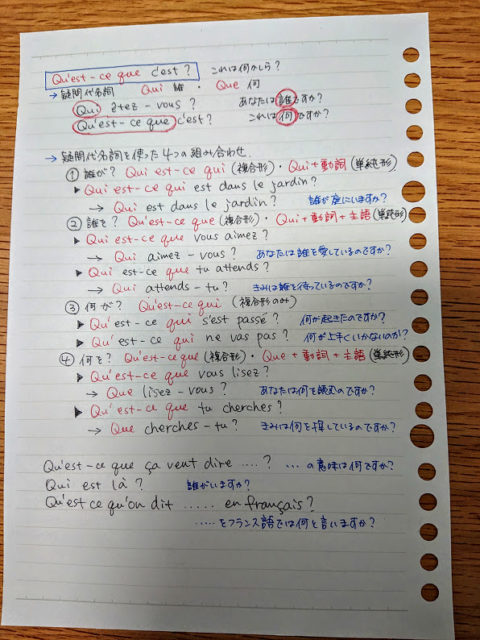 Qu'est-ce que c'est ? これは何かしら?
→ 疑問代名詞 Qui 誰 ・ Que 何
Qui êtez-vous ? あなたは誰ですか?
Qu'est-ce que c'est ? これは何ですか?
→ 疑問代名詞を使った4つの組み合わせ
① 誰が? Qui est-ce qui (複合形)・Qui+動詞(単純形)
▶ Qui est-ce qui est dans le jardin?
→ Qui est dans le jardin? 誰が庭にいますか?
② 誰を? Qu'est-ce que (複合形)・Qui+動詞+主語(単純形)
▶ Qui est-ce que vous aimez ?
→ Qui aimez-vous ? あなたは誰を愛しているのですか?
▶ Qui est-ce que tu attends ?
→ Qui attends-tu ? きみは誰を待っているのですか?
③ 何が? Qu'est-ce qui (複合形のみ)
▶ Qu'est-ce qui s'est passé ? 何が起きたのですか?
▶ Qu'est-ce qui ne vas pas ? 何が上手くいかないのか?
④ 何を? Qu'est-ce que (複合形)・Que+動詞+主語(単純形)
▶ Qu'est-ce que vous lisez ?
→ Que lisez-vous ? あなたは何を読むのですか?
▶ Qu'est-ce que tu cherches ?
→ Que cherches-tu ? きみは何を探しているのですか?
Qu'est-ce que ça veut dire ....? ...の意味は何ですか?
Qui est là ? 誰がいますか?
Qu'est ce qu'on dit ..... en français ?
.....をフランス語では何と言いますか?